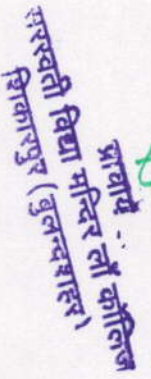 प्राचार्य
सरस्वती विद्या मन्दिर लॉ कॉलिज
शिकारपुर (बुलन्दशहर)